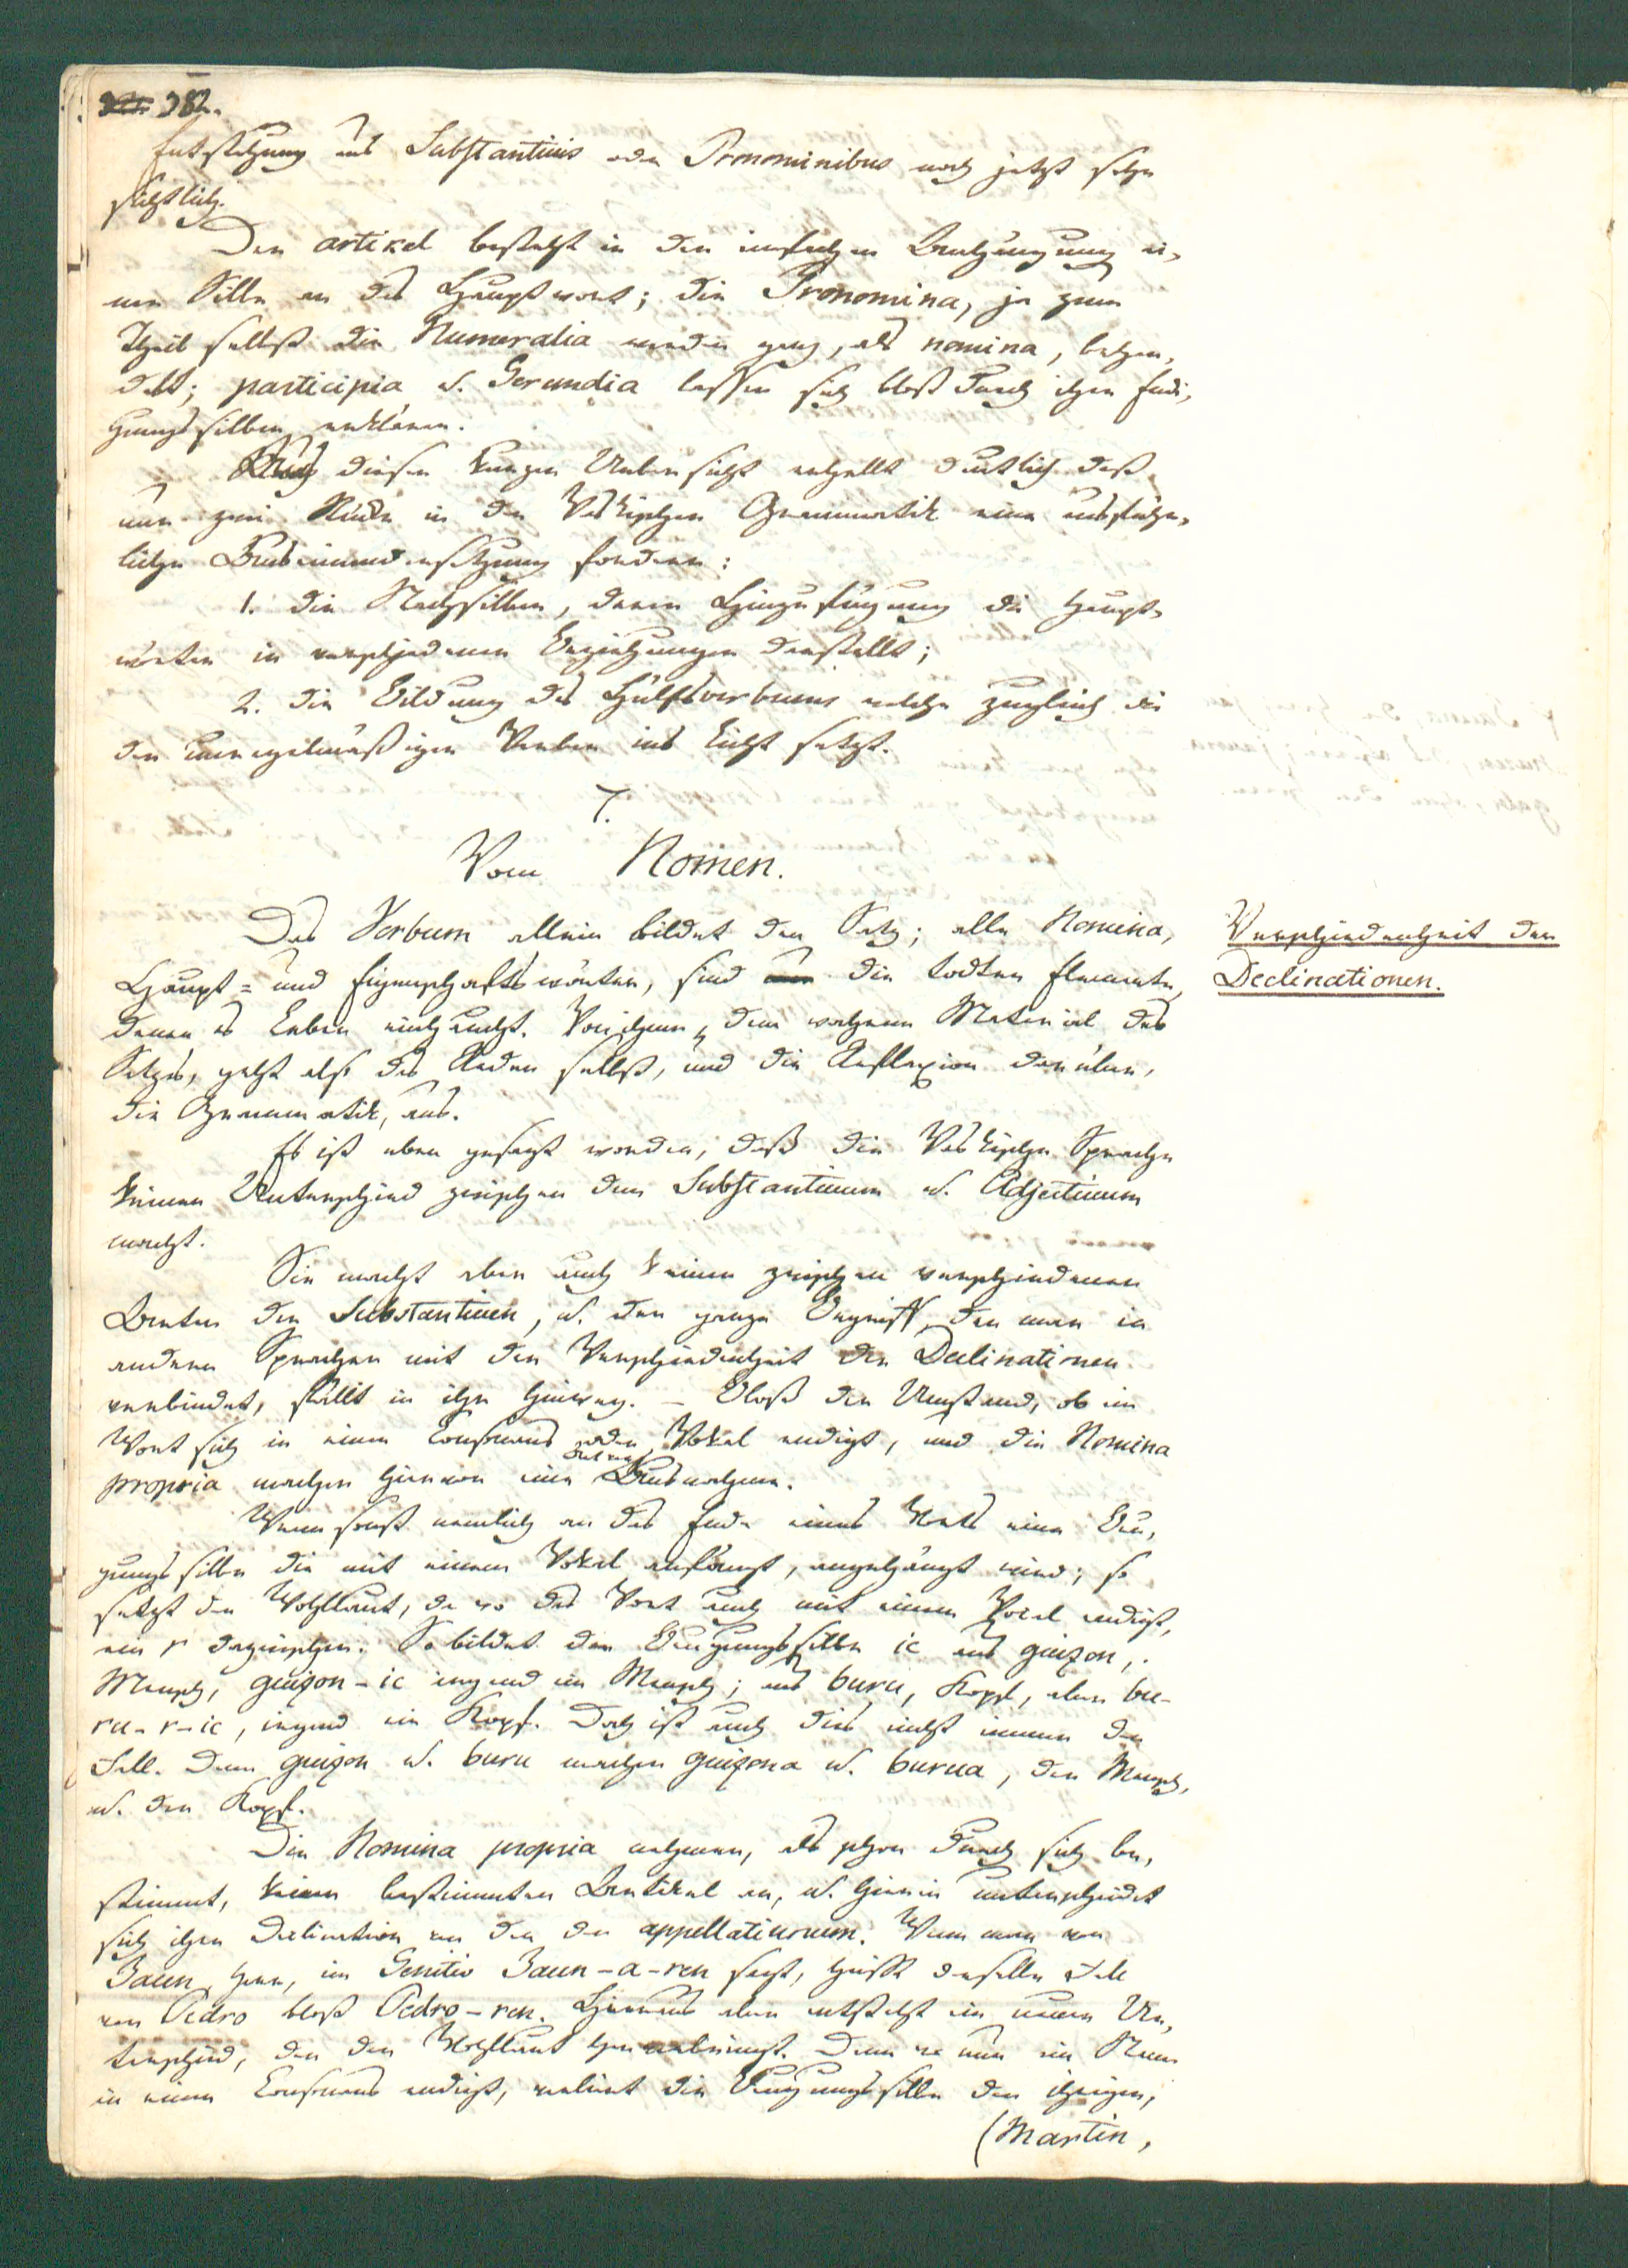 382.
Entstehung aus Substantivis oder Pronominibus noch jetzt sehr
sichtlich.
Der artikel besteht in der einfachen Anhängung ei-
ner Silbe an das Hauptwort; die Pronomina, ja zum
Theil selbst die Numeralia werden ganz, als nomina, behan-
delt; participia u. Gerundia lassen sich bloß durch ihre Endi-
gungssilben erklären.
Aus dieser kurzen Uebersicht erhellt deutlich daß
nur zwei Stücke in der Vaskischen Grammatik eine ausführ-
liche Auseinandersetzung fordern:
1. die Nachsilben, deren Hinzufügung die Haupt-
wörter in verschiedenen Beziehungen darstellt;
2. die Bildung des Hülfsverbums welche zugleich die
der unregelmäßigen Verben ins Licht setzt.
7.
Vom Nomen.
Das Verbum allein bildet den Satz; alle Nomina,
Haupt- und Eigenschaftswörter, sind die todten Elemente,
denen es Leben einhaucht. Von ihnen, dem wahren Material des
Satzes, geht also das Reden selbst, und die Reflexion darüber,
die Grammatik, aus.
Es ist oben gesagt worden, daß die Vaskische Sprache
keinen Unterschied zwischen dem Substantivum u. Adjectivum
macht.
Sie macht aber auch keinen zwischen verschiedenen
Arten der Substantiven, u. der ganze Begriff, den man in
andern Sprachen mit der Verschiedenheit der Declinationen
verbindet, fällt in ihr hinweg. – Bloß der Umstand, ob ein
Wort sich in einen Consonans oder Vokal endigt, und die Nomina
propria machen hiervon eine Ausnahme.
Wenn sonst nemlich an das Ende eines Worts eine Beu-
gungssilbe die mit einem Vokal anfängt, angehängt wird; so
setzt der Wohllaut, da wo das Wort auch mit einem Vocal endigt,
ein r dazwischen. So bildet die Beugungssilbe ic aus guizon,
Mensch, guizon-ic irgend ein Mensch; aus buru, Kopf, aber bu-
ru-r-ic, irgend ein Kopf. Doch ist auch dies nicht immer der
Fall. Denn guizon u. buru machen guizona u. burua, der Mensch,
u. der Kopf.
Die Nomina propria nehmen, als schon durch sich be-
stimmt, keinen bestimmten Artikel an, u. hierin unterscheidet
sich ihre Declination von der der appellativorum. Wenn man von
Jaun, Herr, im Genitiv Jaun-a-ren sagt, heißt derselbe Fall
von Pedro bloß Pedro-ren. Hieraus aber entsteht ein neuer Un-
terschied, den der Wohllaut hervorbringt. Denn wo nun ein Name
in einen Consonans endigt, verliert die Beugungssilbe den ihrigen,
(Martin,
Verschiedenheit der
Declinationen.